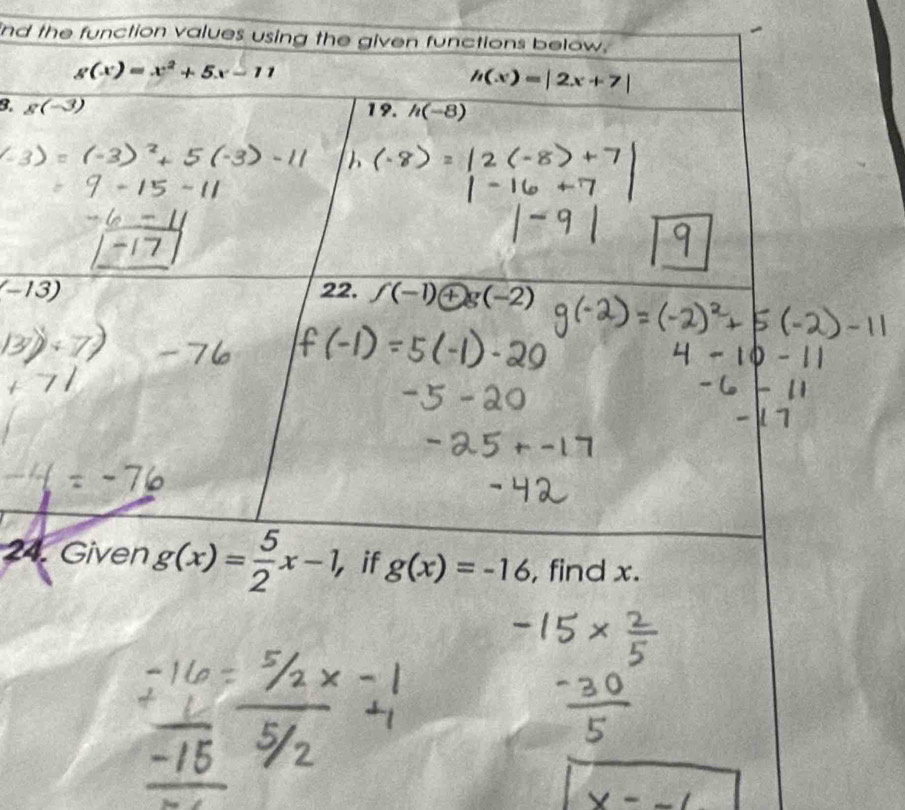 ind the function values using the given functions below.
g(x) = x² + 5x - 11
h(x) = | 2x + 7 |
8. g(-3)
-3) = (-3)² + 5(-3) - 11
9 - 15 - 11
-6 - 11
-17
19. h(-8)
h(-8) = |2(-8) + 7|
|-16 + 7|
|-9|
9
(-13)
13)) + 7)
-76
+ 71
= -76
22. f(-1) + g(-2)
f(-1) = 5(-1) - 20
-5 - 20
-25 + -17
-42
g(-2) = (-2)² + 5(-2) - 11
4 - 10 - 11
-6 - 11
-17
24. Given g(x) = 5/2 x - 1, if g(x) = -16, find x.
-16 = 5/2 x - 1
+ 1 5/2 +1
-15
-15 × 2/5
-30
5